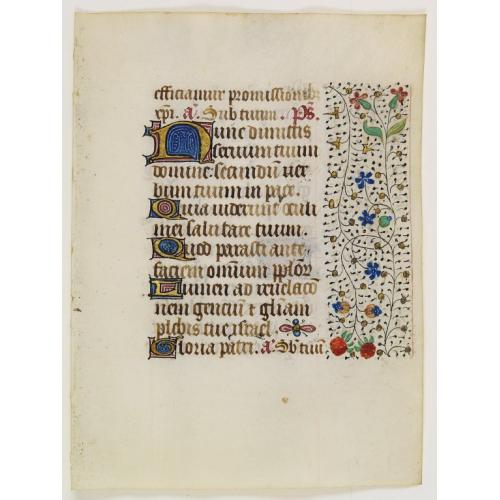 efficiamur promissionib;
xpi. a. Sub tuum. ps.
Nunc dimittis
servum tuum
domine secundu ver
bum tuum in pace.
Quia viderunt oculi
mei salutare tuum.
Quod parasti ante
faciem omnium pplor
Lumen ad revelacō
nem gencium et gliam
plebis tue israel.
Gloria patri. a. Sb tuū.